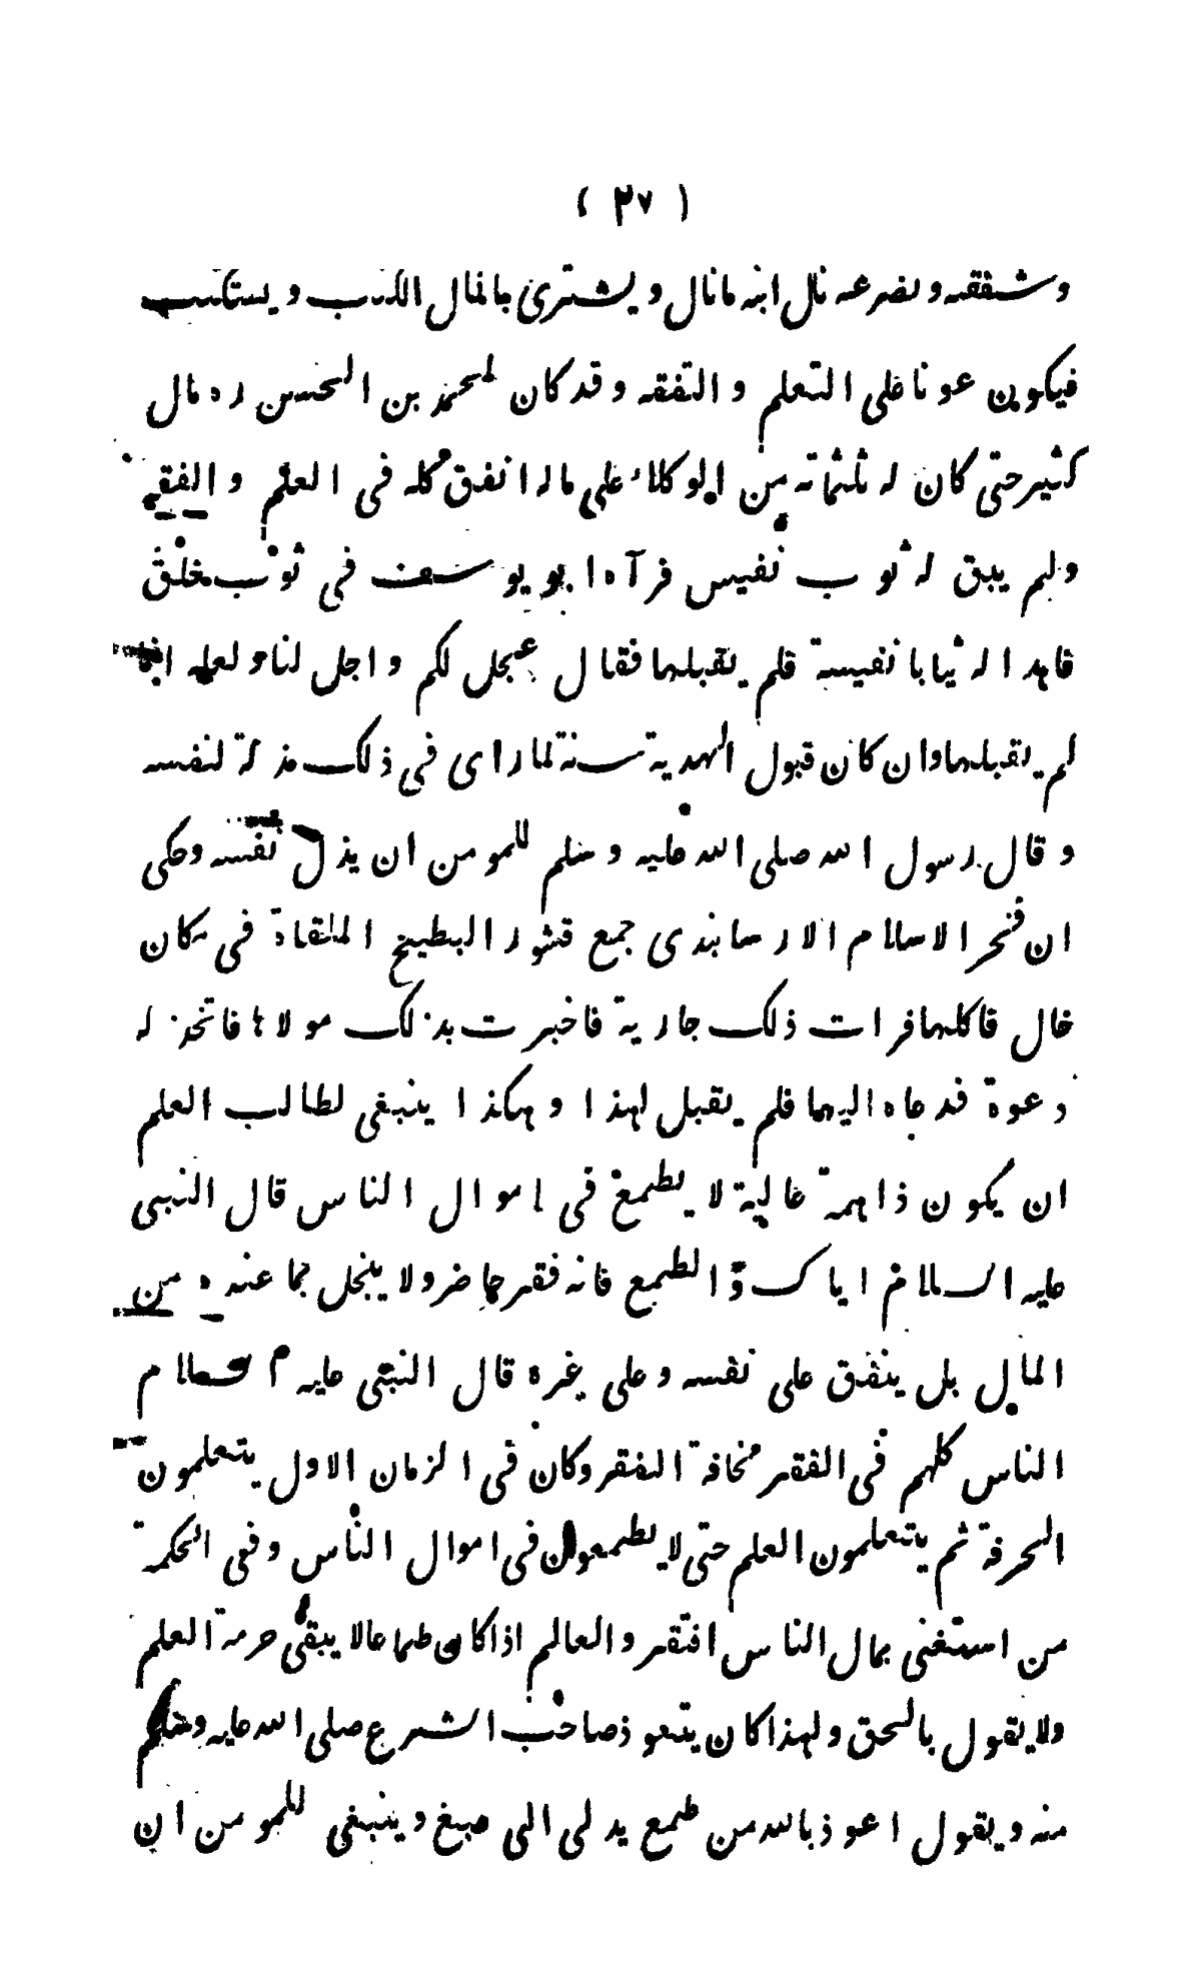 ( ٣٧ )
وشفقته وتضرعه نال ابنه مانال ويشترى بالمال الكتب ويستكتب
فيكون عونا على التعلم والتفقه وقد كان لمحمد بن الحسن ره مال
كثير حتى كان له ثلثمائة من الوكلاء على ماله انفق كله فى العلم والفقه
ولم يبق له ثوب نفيس فرآه ابو يوسف فى ثوب خلق
فاهدا له ثيابا نفيسة فلم يقبلها فقال عجل لكم واجل لنا ولعله انما
لم يقبلها وان كان قبول الهدية سنة لما راى فى ذلك مذلة لنفسه
وقال رسول الله صلى الله عليه وسلم للمومن ان يذل نفسه وحكى
ان فخر الاسلام الارسابندى جمع قشور البطيخ الملقاة فى مكان
خال فاكلها فرات ذلك جارية فاخبرت بذلك مولاها فاتخذ له
دعوة فدعاه اليها فلم يقبل لهذا وهكذا ينبغى لطالب العلم
ان يكون ذا همة عالية لا يطمع فى اموال الناس قال النبى
عليه السلام اياك والطمع فانه فقر حاضر ولا يبخل بما عنده من
المال بل ينفق على نفسه وعلى غيره قال النبى عليه السلام
الناس كلهم فى الفقر مخافة الفقر وكان فى الزمان الاول يتعلمون
الحرفة ثم يتعلمون العلم حتى لا يطمعون فى اموال الناس وفى الحكمة
من استغنى بمال الناس افتقر والعالم اذا كان طماعا لا يبقى حرمة العلم
ولا يقول بالحق ولهذا كان يتعوذ صاحب الشرع صلى الله عليه وسلم
منه ويقول اعوذ بالله من طمع يدلى الى طبع وينبغى للمومن ان